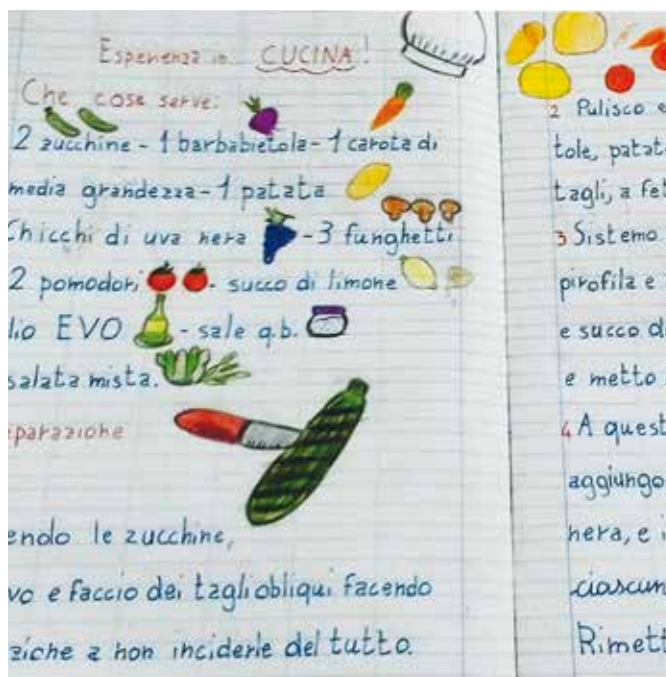 Esperienza in... CUCINA!
Che cosa serve:
2 zucchine - 1 barbabietola - 1 carota di
media grandezza - 1 patata
Chicchi di uva nera - 3 funghetti
2 pomodori - succo di limone
lio EVO - sale q.b.
salata mista.
eparazione
endo le zucchine,
vo e faccio dei tagli obliqui facendo
ziche a non inciderle del tutto.
2 Pulisco e
tole, patat
tagli, a fet
3 Sistemo
pirofila e
e succo d
e metto
4 A quest
aggiungo
nera, e i
ciascun
Rimett